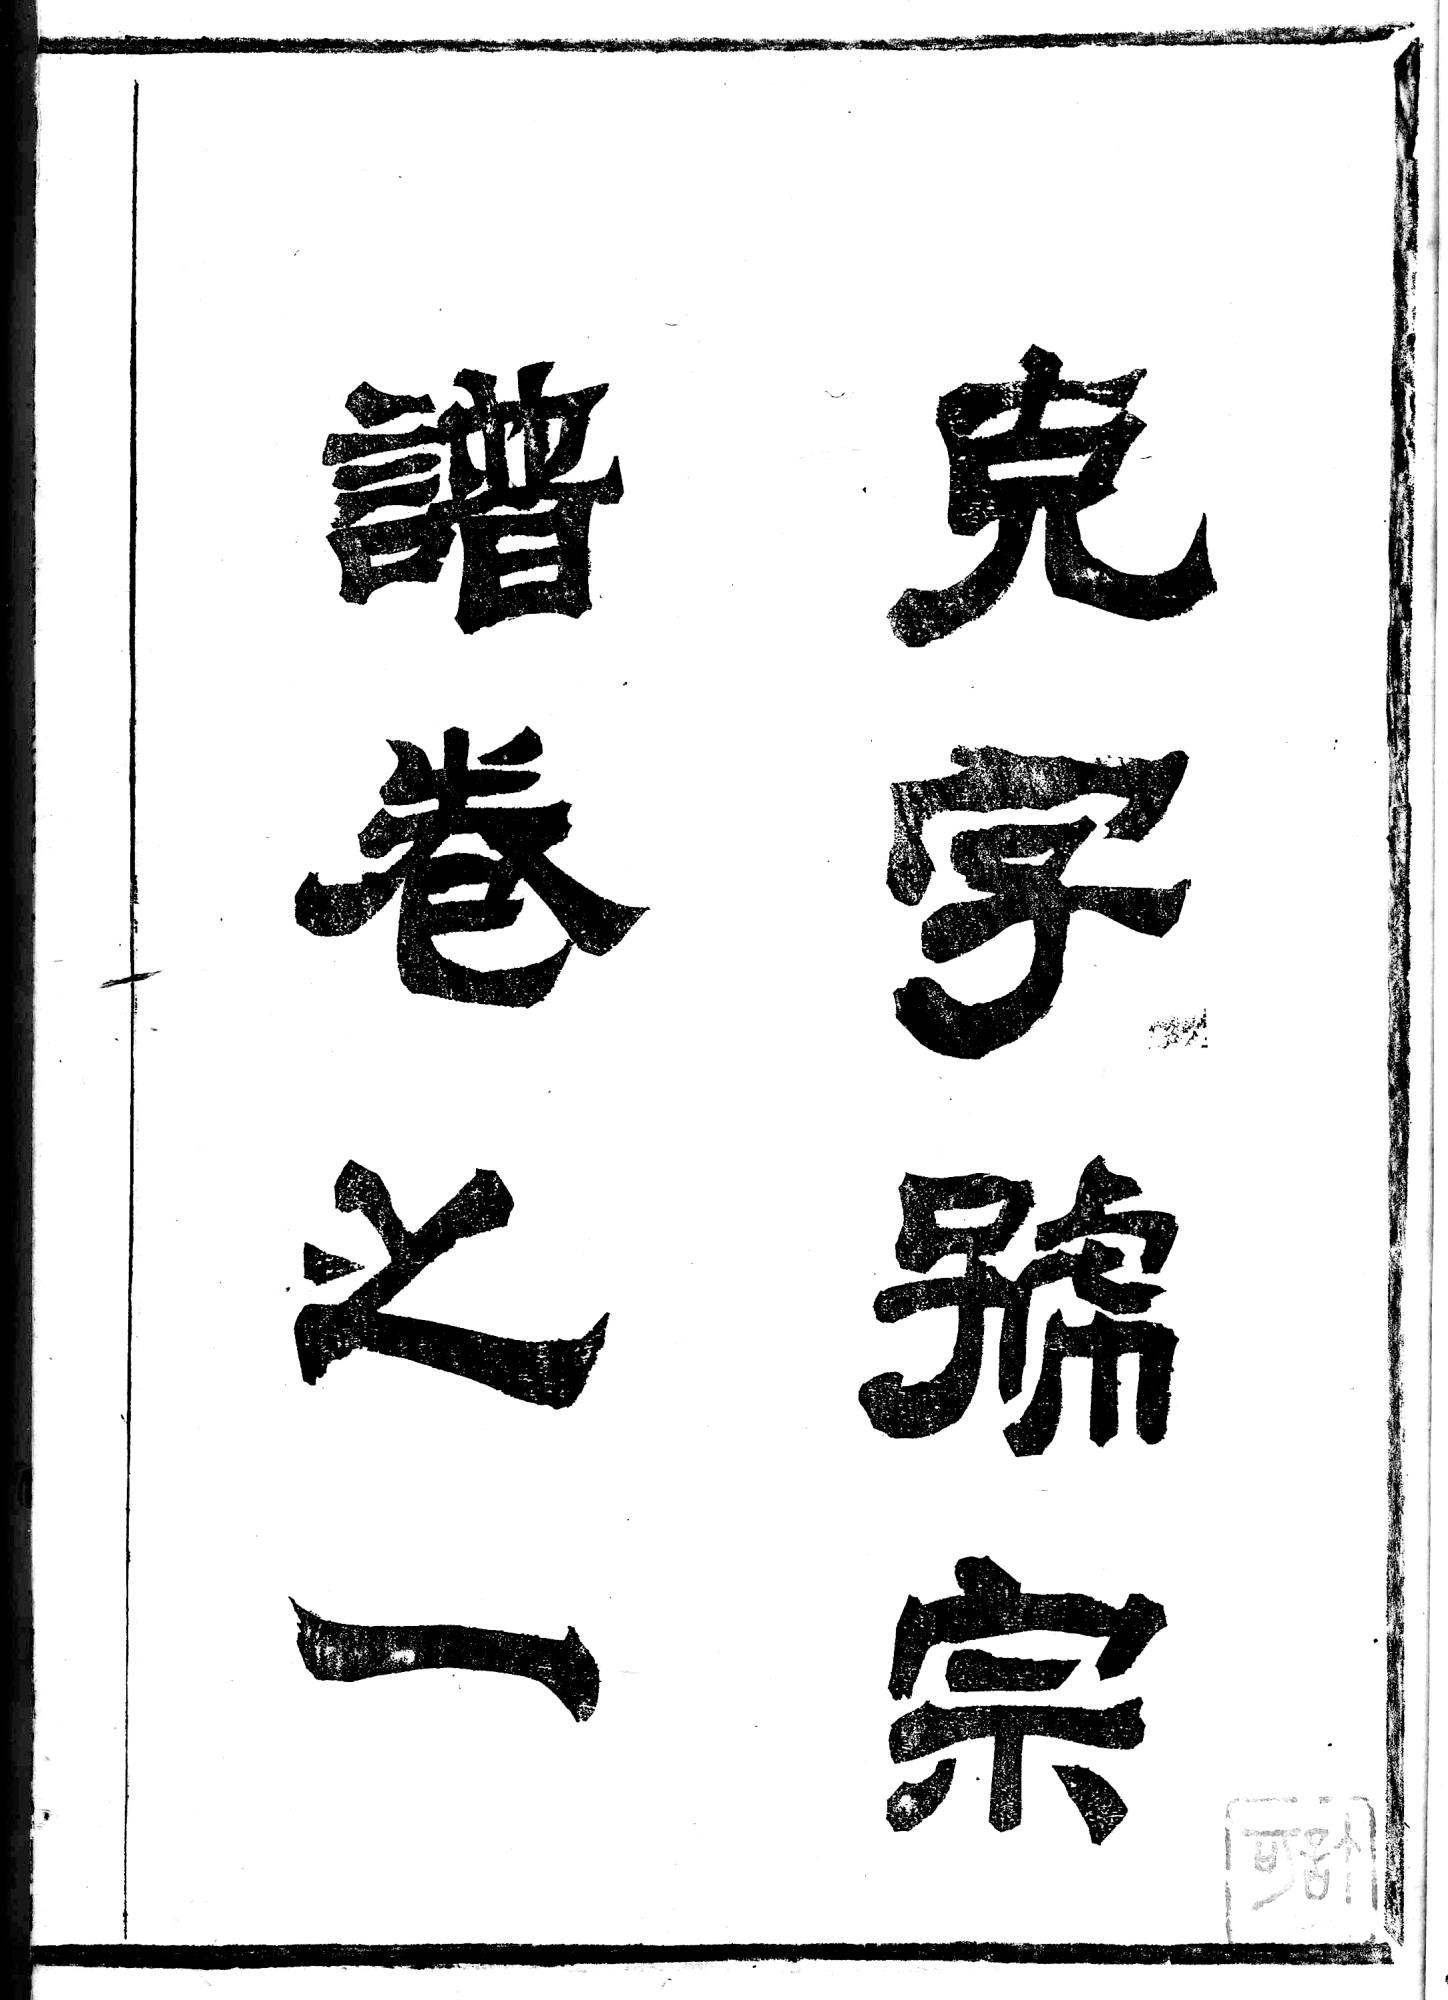 克字號宗
譜卷之一